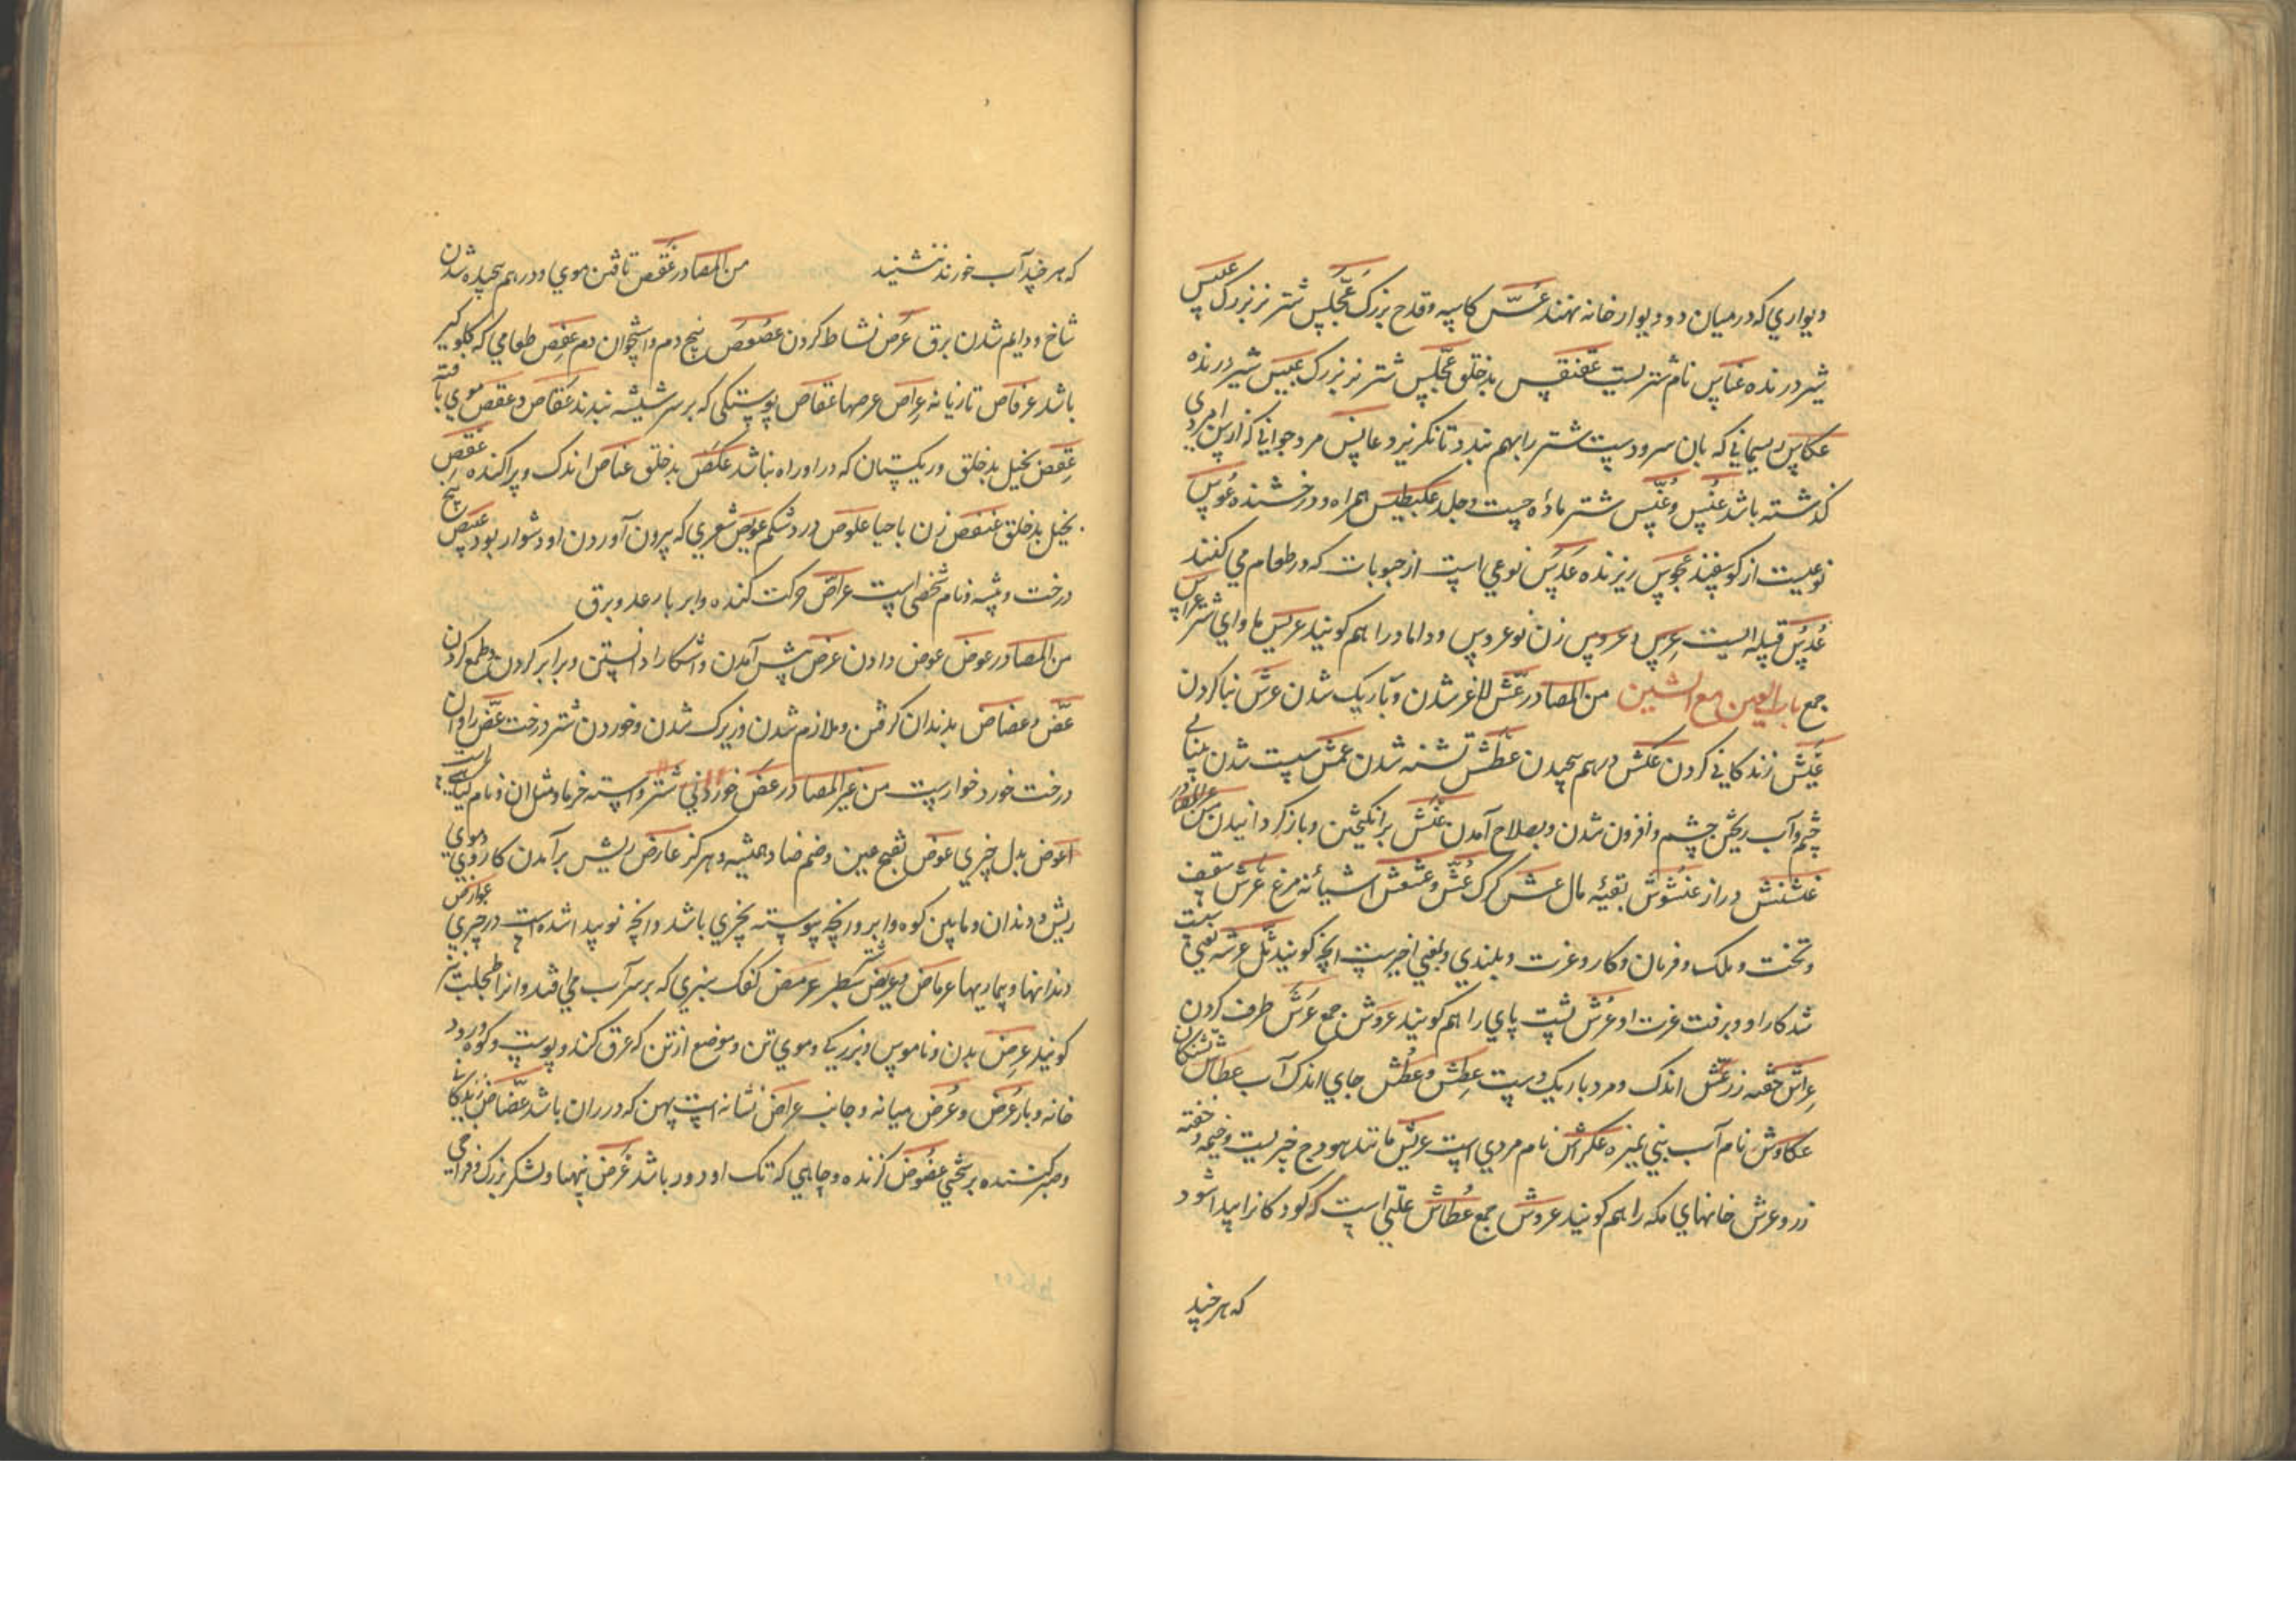 ديواري که در ميان دو ديوار خانه نهند عُسّ کاسه و قدح بزرک عَجَلَّس شتر نر بزرک
شير درنده عناس نام شتريست عفنقس بدخلق عجلّس شتر نر بزرک عبيس شير درنده
عکاس ريسماني که بان سر و دست شتر را بهم بندد تا نکريزد عانس مرد جواني که از سن امردي
کذشته باشد عُنُس و عُنَّس شتر ماده چست و جلد همراه و درخشنده عُوس
نوعيست از کوسفند عجوس ريزنده عَدَس نوعي است از حبوبات که در طعام مي کنند
عُدُس قبيله ايست عِرس و عروس زن نو عروس و داماد را هم کويند عريس ماواي شتر عرايس
جمع باب العين مع الشين من المصادر عَشّ لاغر شدن و باريک شدن عرش بنا کردن
عَيش زندکاني کردن عکش درهم پيچيدن عطش تشنه شدن عمش سست شدن بينايي
چشم و آب ريختن چشم و افزون شدن و بصلاح آمدن عَنَش برانکيختن و باز کردانيدن من غير المصادر
عشنش دراز عنشوش بقيه مال عُشّ و عشعش اشيانه مرغ عرش سقف
و تخت و ملک و فرمان و کار و عزت و بلندي و بمعني اخيرست انچه کويند ثل عرشه يعني
شد کار او و برفت عزت او عُرش پشت پاي را هم کويند عروش جمع عَرش طرف کردن
اندک و مرد باريک دست عِطش و عُطش جاي اندک آب عطاش تشنکان
عکاوش نام آب بني نميره عکراش نام مردي است عريش مانند هودج خيريست و خيمه و خفته
زر و عرش خانهاي مکه را هم کويند عروش جمع عُطاش علتي است که کودکانرا پيدا شود
که هر چند
که هر چند آب خورند ننشيند من المصادر عَقص تافتن موي و درهم پيچيده شدن
شاخ و دايم شدن برق عَرَص نشاط کردن عُصعُص بيخ دم و استخوان دم عَفِص طعامي که کلو کير
باشد عرفاص تازيانه عِراص عرصها عفاص پوستکي که بر سر شيشه بندند عقاص و عقص موي بافته
عَقِص بخيل بدخلق و ريکستان که در او راه نباشد عَکِص بدخلق عناص اندک و پراکنده عقص
بخيل بدخلق عنفص زن با حيا علوص درد شکم عويص شعري که بيرون آوردن او دشوار بود عيص بيخ
درخت و بيشه و نام شخصي است عَراص حرکت کننده و ابر با رعد و برق
من المصادر عَوض عوض دادن عرض پيش آمدن و اشکارا دانستن و برابر کردن و طمع کردن
عَضّ و عضاض بدندان کرفتن و ملازم شدن و زيرک شدن و خوردن شتر درخت عَضّ را و ان
درخت خورد خوارست من غير المصادر عُضّ شتر و استه خرما و مثل ان و نام کياهي است
اعوض بدل چيزي عوض بفتح عين و ضم ضاد هميشه و هرکز عارض ريش برآمدن کا روي و موي
ريش و دندان و مابين کوه و ابر و آنچه پيوسته بچيزي باشد و انچه نو پيدا شده است در چيزي عوارض
دندانها و بيماريها عرماض عريض سطبر عرمض کفک سبزي که بر سر آب مي افتد و انرا طحلب نيز
کويند عِرض بدن و ناموس و بزرکي و موي تن و موضع از تن که عرق کند و پوست و کوه و رود
خانه و بار عُرض و عُرض ميانه و جانب عراض نشانه است پهن که در ران باشد عَضاض زندکاني
و صبر کننده بر سختي عضوض کزنده و چاهي که تک او دور باشد عَرض پهنا و لشکر بزرک و فراخي